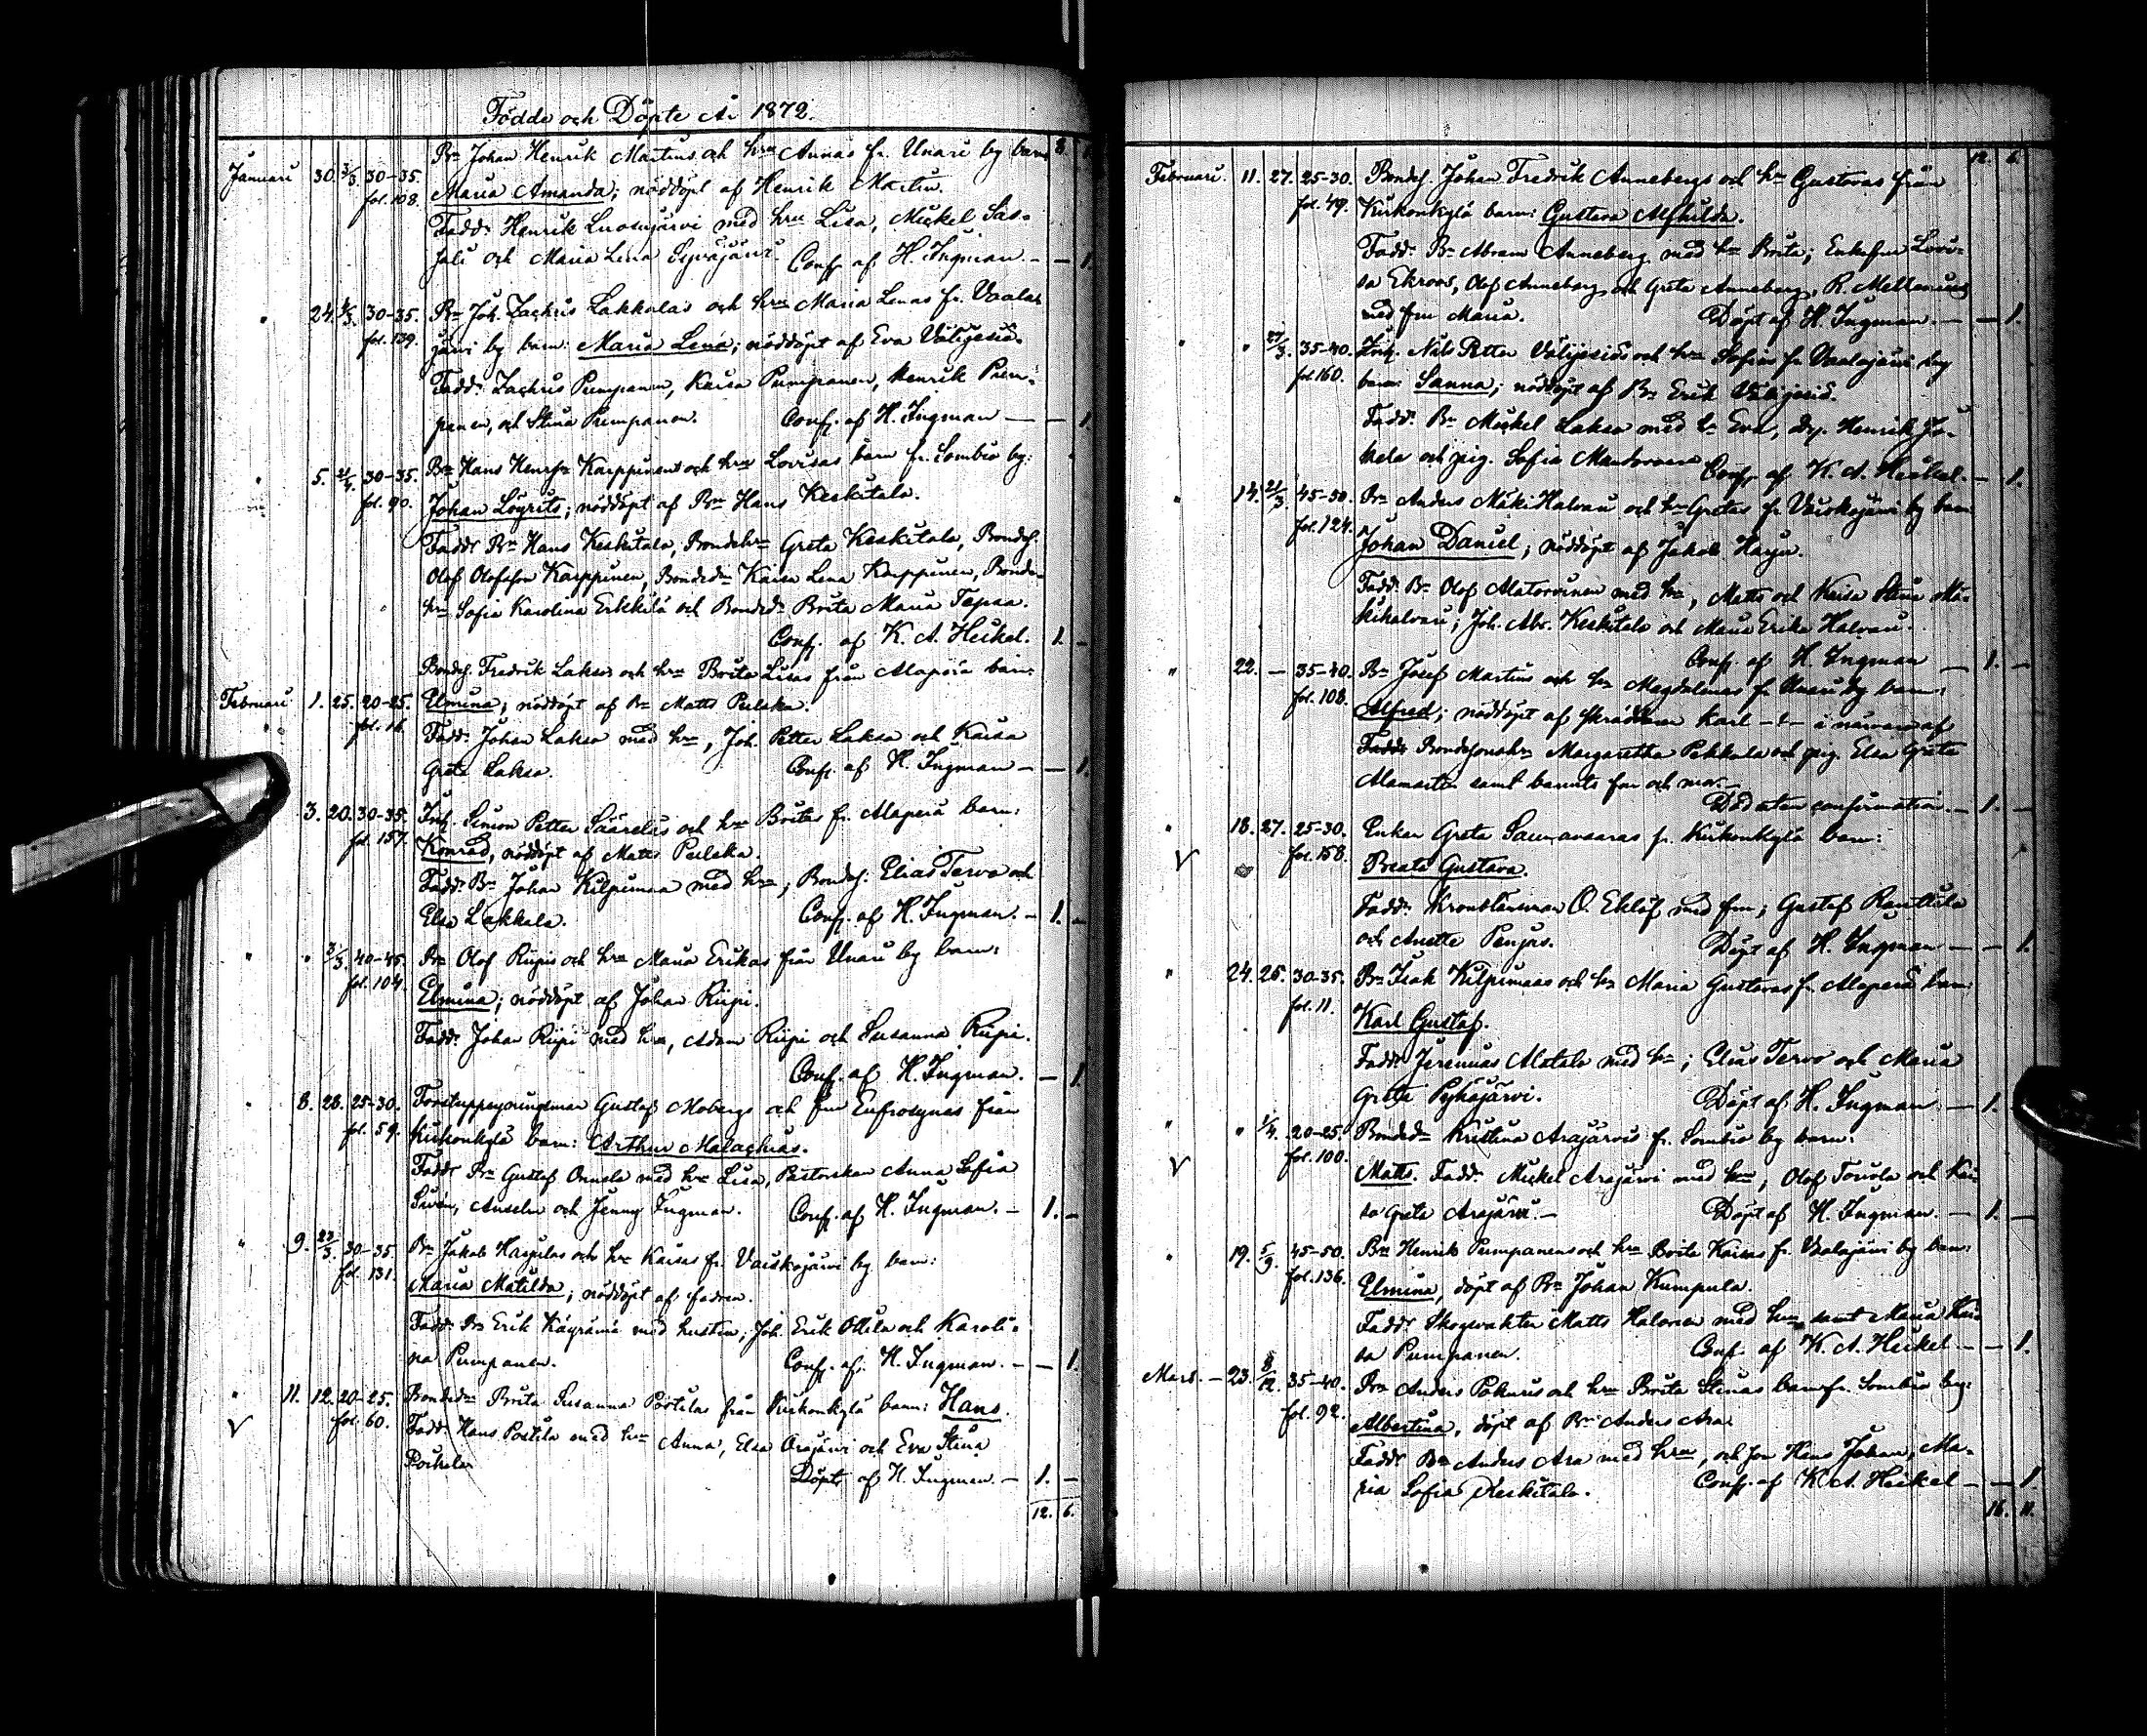 Födde och Döpte År 1872.
8
Januari 30. 3/3. 30-35. Bn Johan Henrik Martins och hru Annas fr. Unari by barn
fol. 108. Maria Amanda; nöddöpt af Henrik Martin.
Fadd: Henrik Luosujärvi med hru Lisa, Mickel Sas-
sali och Maria Lena Syväjärvi. Conf. af H. Ingman. — — 1.
" 24. 3/3. 30-35. Bn Joh. Zachris Lakkalas och hru Maria Lenas fr. Vaala-
fol. 139. järvi by barn: Maria Lena; nöddöpt af Eva Väliyesiä.
Fadd: Zachris Pumpanen, Kaisa Pumpanen, Henrik Pum-
panen, och Stina Pumpanen. Conf. af H. Ingman — — 1.
" 5. 21/4. 30-35. Bn Hans Henrss Karppinens och hru Lovisas barn fr. Sombio by:
fol. 90. Johan Löyrits; nöddöpt af Bn Hans Keskitalo.
Fadd: Bn Hans Keskitalo, Bondehru Greta Keskitalo, Bondes.
Olof Olofsson Karppinen, Bonded. Kaisa Lena Karppinen, Bonde-
hru Sofia Karolina Erkkilä och Bonded. Brita Maria Tepsa.
Conf. af K. A. Heikel. 1. -
Bondes. Fredrik Laksos och hru Brita Lisas från Alaperä barn:
Februari 1. 25. 20-25. Elmina; nöddöpt af Bn Matts Pulska.
fol. 16. Fadd: Johan Lakso med hru, Joh. Petter Lakso och Kaisa
Greta Lakso. Conf. af H. Ingman — — 1.
3. 20. 30-35. Inh. Simon Petter Säärelas och hru Britas fr. Alaperä barn:
fol. 157. Konrad, nöddöpt af Matts Pulska.
Fadd: Bn Johan Kilpimaa med hru; Bondes. Elias Tervo och
Elsa Lakkala. Conf. af H. Ingman. — 1. -
" " 3/3. 40-45. Bn Olof Riipis och hru Maria Erikas från Unari by barn:
fol. 104. Elmina; nöddöpt af Johan Riipi.
Fadd: Johan Riipi med hru, Adam Riipi och Susanna Riipi.
Conf. af H. Ingman. — 1.
" 8. 28. 25-30. Forstuppsyningsman Gustaf Mobergs och fru Eufrosynes från
fol. 59. Kirkonkylä barn: Arthur Malachias.
Fadd: Bn Gustaf Onnela med hru Lisa, Pastorskan Anna Sofia
Swén, Anselm och Jenny Ingman. Conf. af H. Ingman. — 1. —
" 9. 23/3. 30-35. Bn Jakob Haipulas och hru Kaisas fr. Vaiskojärvi by barn:
fol. 131. Maria Matilda; nöddöpt af fadren.
Fadd: Bn Erik Käyrämö med hustru; Joh. Erik Ottila och Karoli-
na Pumpanen. Conf. af. H. Ingman. — — 1.
" 11. 12. 20-25. Bonded. Brita Susanna Pörtilas från Kirkonkylä barn: Hans.
V fol. 60. Fadd: Hans Pörtila med hru Anna, Elsa Orajärvi och Eva Stina
Poikela Döpt af H. Ingman. — 1. —
12. 6.
12. 6.
Februari. 11. 27. 25-30. Bondes. Johan Fredrik Annebergs och hru Gustavas från
fol. 49. Kirkonkylä barn: Gustava Alfhilda.
Fadd: Bn Abram Anneberg med hru Brita; Enkefru Lovi-
sa Ekroos, Olof Anneberg och Greta Anneberg, R. Mellenius
med fru Maria. Döpt af H. Ingman. — — 1.
" " 27/3. 35-40. Inh. Nils Petter Väliyesiös och hru Sofias fr. Vaalajärvi by
fol. 160. barn: Sanna; nöddöpt af Bn Erik Väliyesiö.
Fadd: Bn Mickel Lakso med hu Eva, drg. Henrik Jo-
kela och pig. Sofia Mandorvaara Conf. af K. A. Heikel. — 1.
" 14. 21/3. 45-50. Bn Anders MäkiHalvari och hru Gretas fr. Vaiskojärvi by barn
fol. 124. Johan Daniel; nöddöpt af Jakob Harju.
Fadd: Bn Olof Alatorvinen med hru, Matts och Kaisa Stina Mä-
kihalvari; Joh. Abr. Keskitalo och Maria Erika Halvari.
Conf. af H. Ingman — 1. —
" 22. — 35-40. Bn Josef Martins och hru Magdalenas fr. Unari by barn:
fol. 108. Alfred; nöddöpt af skräddaren Karl — i närvaro af
Fadd: Bondesonshru Margaretha Pokkala och pig. Elsa Greta
Alamartin samt barnets far och mor.
Död utan confirmation. — 1. —
" 18. 27. 25-30. Enkan Greta Saunavaaras fr. Kirkonkylä barn:
V fol. 158. Beata Gustava.
Fadd: Kronolänsman O. Eklöf med fru; Gustaf Ranttila
och Anette Penjas. Döpt af H. Ingman — — 1.
" 24. 25. 30-35. Bn Isak Kilpimaas och hu Maria Gustavas fr. Alaperä barn:
fol. 11. Karl Gustaf.
Fadd: Jeremias Alatalo med hu; Elias Tervo och Maria
Greta Pyhäjärvi. Döpt af H. Ingman. — 1.
" " 1/4. 20-25. Bonded. Kristina Arajärvis fr. Sombio by barn:
V fol. 100. Matts. Fadd: Mickel Arajärvi med hru, Olof Touola och Kai-
sa Greta Arajärvi. — Döpt af H. Ingman. — 1. —
" 19. 5/9. 45-50. Bn Henrik Pumpanens och hru Brita Kaisas fr. Vaalajärvi by barn:
fol. 136. Elmina, döpt af Bn Johan Kumpula.
Fadd: Skogvakter Matts Halonen med hru samt Maria Kai-
sa Pumpanen. Conf. af K. A. Heikel — — 1.
Mars. — 23. 8/12. 35-40. Bn Anders Pokuris och hru Brita Stinas barn fr. Sombio by:
fol. 92. Albertina, döpt af Bn Anders Ara.
Fadd: Bn Anders Ara med hru, och son Hans Johan, Ma-
ria Sofia Keskitalo. Conf. af K. A. Heikel — — 1.
16. 11.